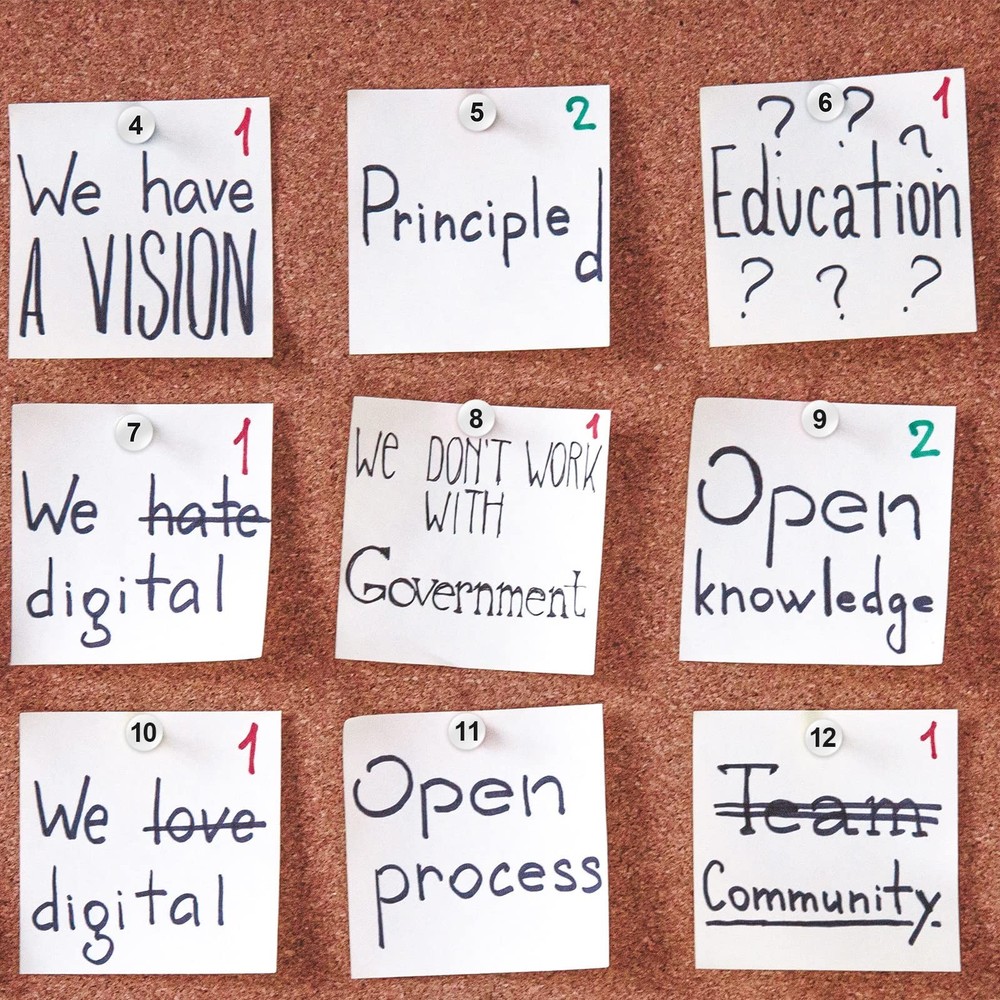 4 1
We have
A VISION
5 2
Principled
? 6 ? 1
?
Education
? ? ?
7 1
We ~~hate~~
digital
8 1
We DON'T WORK
WITH
Government
9 2
Open
knowledge
10 1
We ~~love~~
digital
11
Open
process
12 1
~~Team~~
Community.